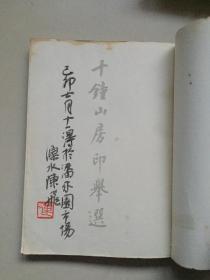 十鐘山房印舉選
己卯七月十一得於潘家園市場
水陳